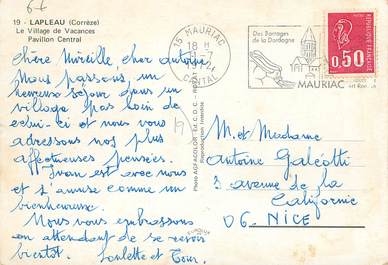 19 - LAPLEAU (Corrèze)
Le Village de Vacances
Pavillon Central
Chère Mireille cher Antoine,
Nous passons, un
heureux séjour dans un
village pas loin de
celui-ci et nous vous
adressons nos plus
affectueuses pensées.
Ivan est avec nous
et s'amuse comme un
bienheureux.
Nous vous embrassons
en attendant de se revoir
bientôt. Loulette et Tour.
15 MAURIAC
18 H
1974
CANTAL
Des Barrages
de la Dordogne
MAURIAC
0,50
POSTES
REPUBLIQUE FRANÇAISE
Photo AGFACOLOR
Reproduction Interdite
19
M. et Madame
Antoine Galeotti
3 avenue de la
Californie
06. NICE